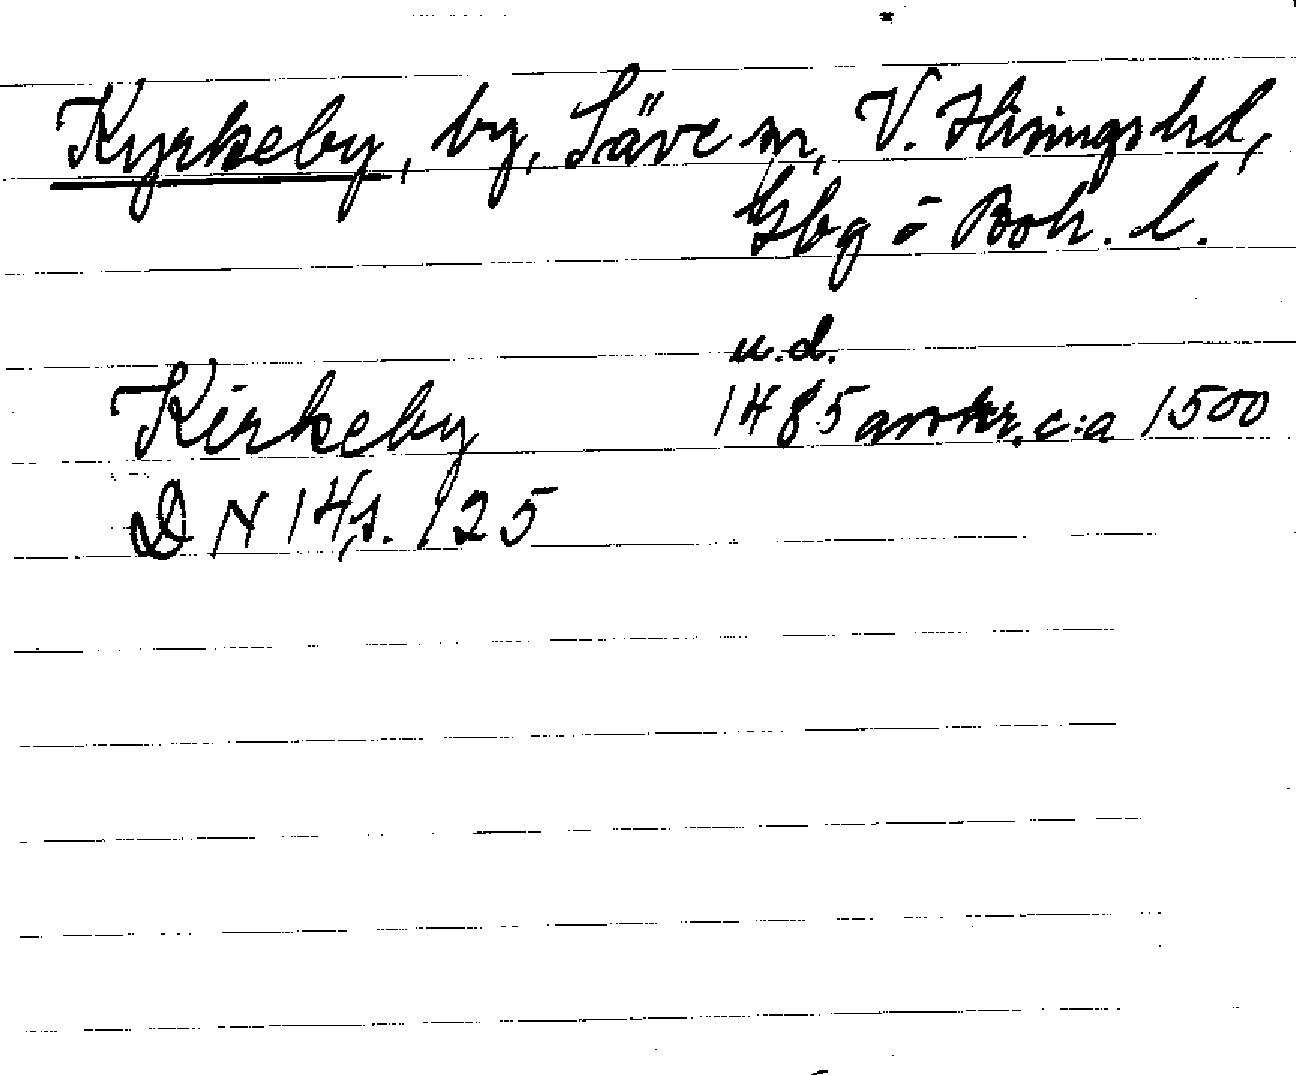 Kyrkeby, by, Säve sn, V. Hisingshd,
Gbg o Boh. l.
u.d.
Kirkeby 1485 avskr. c:a 1500
DN 14, s. 125